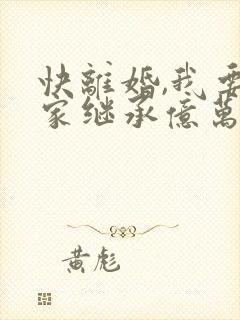 快離婚,我要
家继承億萬
黄彪